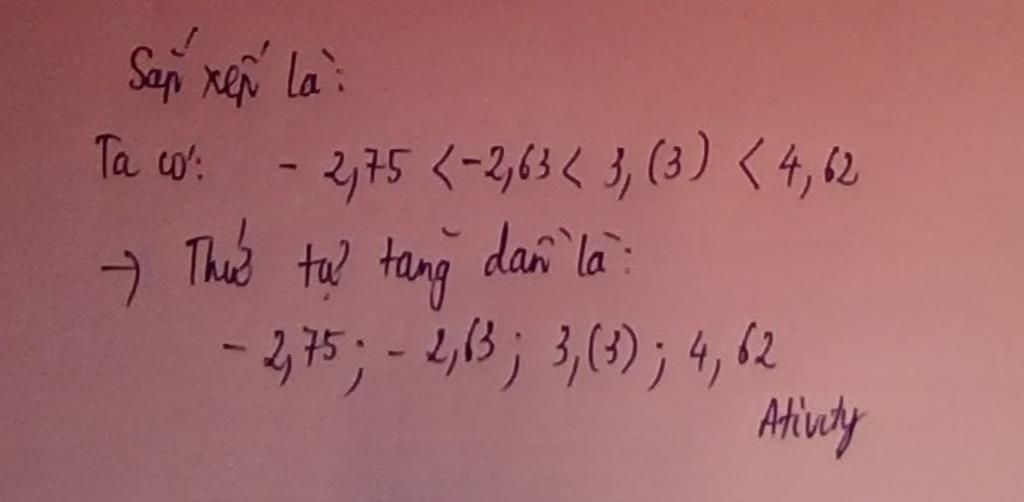 Sắp xếp là:
Ta có: - 2,75 < -2,63 < 3,(3) < 4,62
→ Thứ tự tăng dần là:
- 2,75; - 2,63; 3,(3); 4,62
Ativity